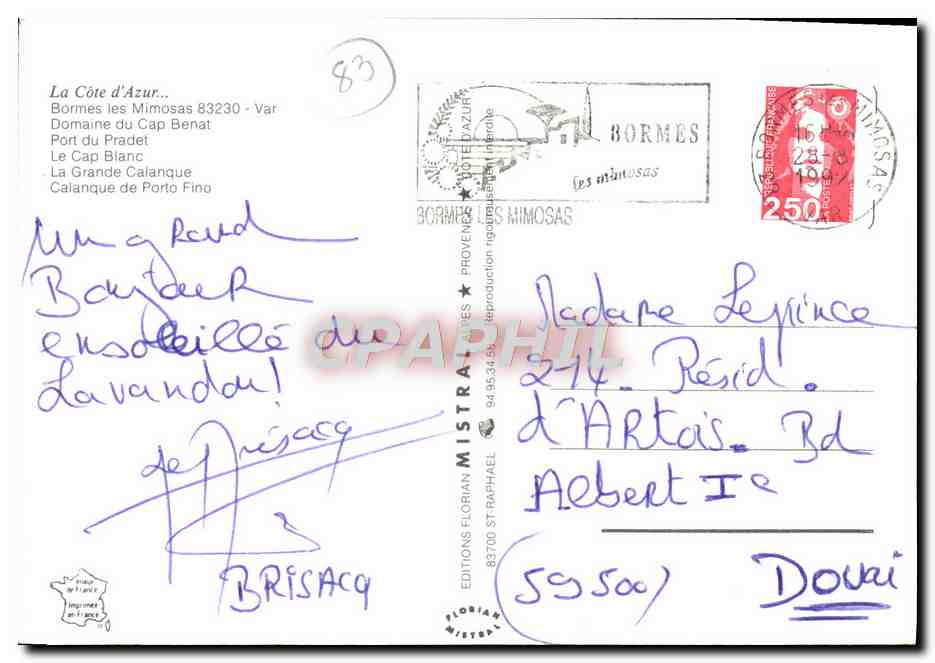 La Côte d'Azur...
Bormes les Mimosas 83230 - Var
Domaine du Cap Benat
Port du Pradet
Le Cap Blanc
La Grande Calanque
Calanque de Porto Fino
83
BORMES
les mimosas
BORMES LES MIMOSAS
RÉPUBLIQUE FRANÇAISE
2,50
POSTES
MIMOSAS
VAR
un grand
Bonjour
ensoleillé du
Lavandou!
BRISACQ
EDITIONS FLORIAN MISTRAL ALPES ★ PROVENCE ★ CÔTE D'AZUR
83700 ST-RAPHAEL 94.95.34.58 Reproduction rigoureusement interdite
FLORIAN MISTRAL
Madame Leprince
214. Résid.
d'Artois. Bd
Albert Ie
(59500) Douai
Imprimée
en France
CPAPHIL